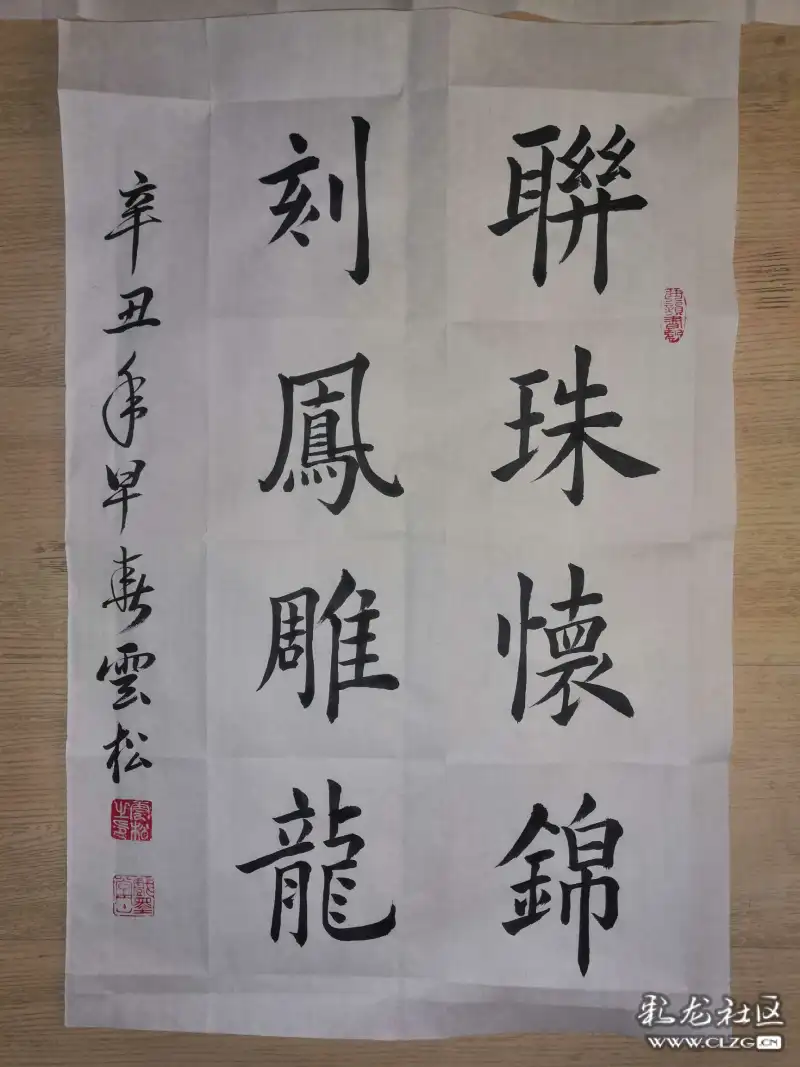 聯珠懷錦
刻鳳雕龍
辛丑年早春雲松
彩龙社区
WWW.CLZG.CN